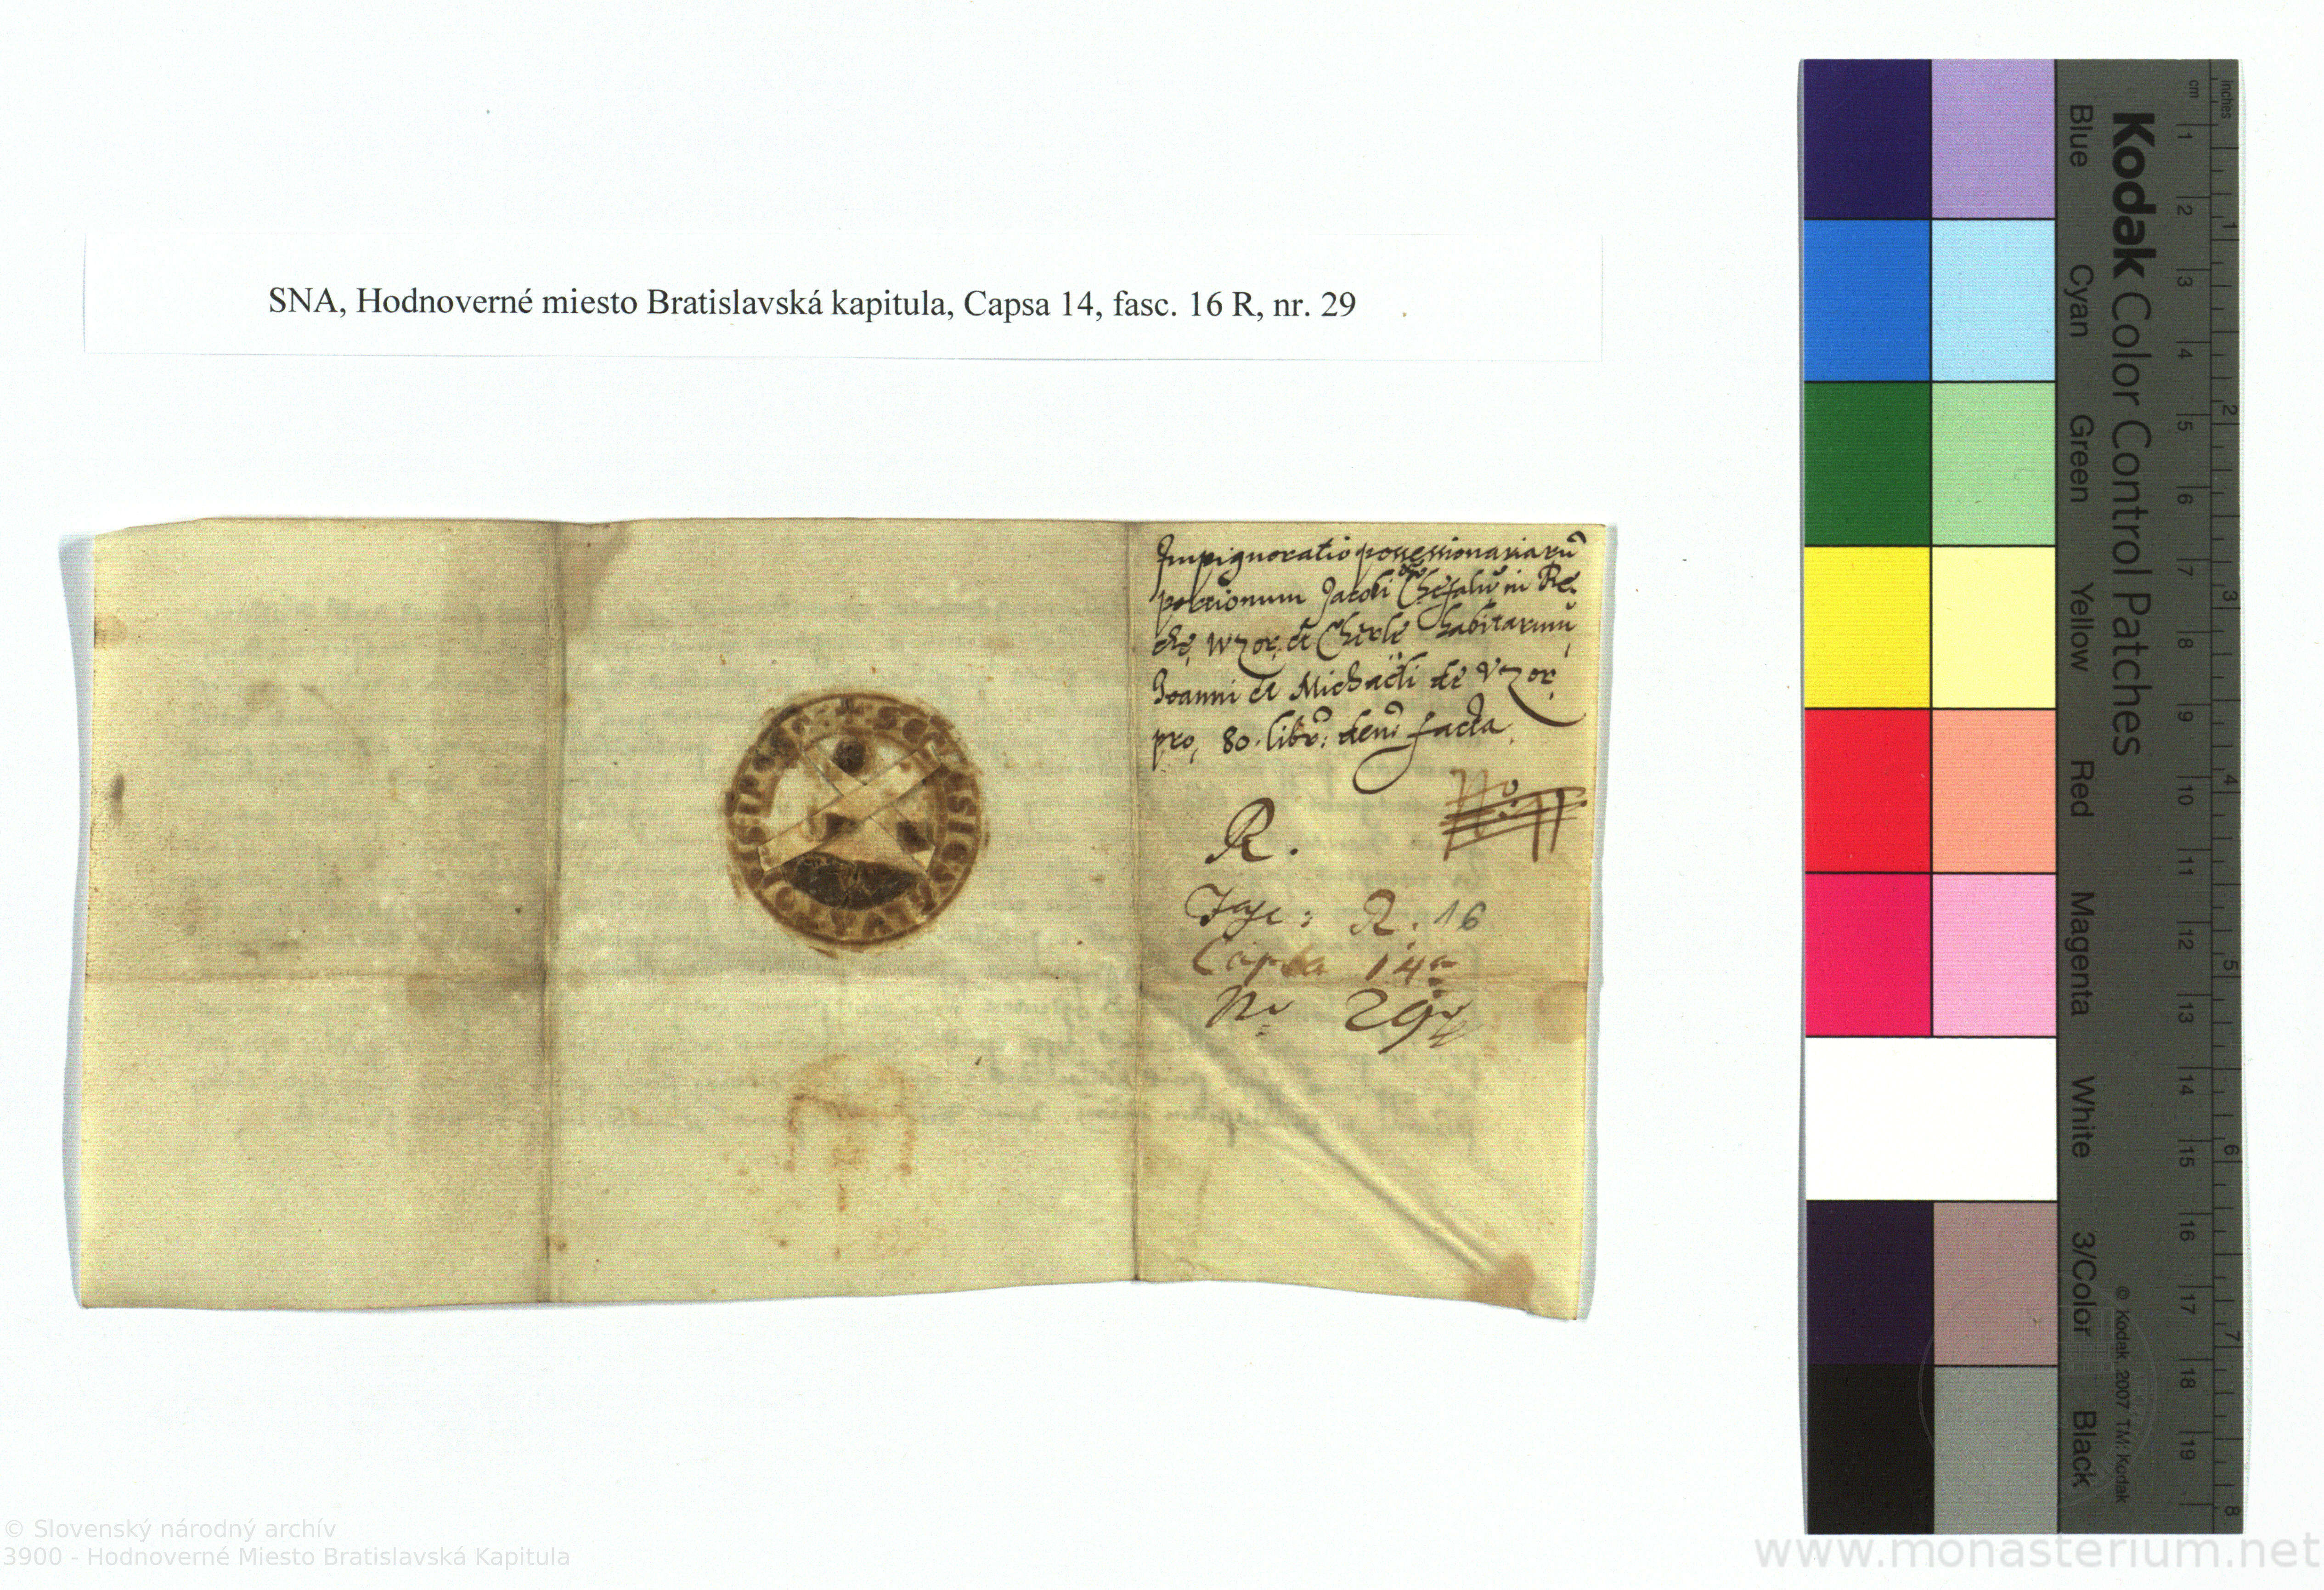 SNA, Hodnoverné miesto Bratislavská kapitula, Capsa 14, fasc. 16 R, nr. 29
Impignoratio possessionariarū
portionum Jacobi de in Re-
che, Wzor, et Cherle habitarum
Joanni et Michaëli de Vzor,
pro, 80. libr: den: facta
R.
Fasc: R. 16
Capsa 14a
Nr 29
Kodak Color Control Patches
Blue Cyan Green Yellow Red Magenta White 3/Color Black
© Kodak, 2007 TM: Kodak
inches 1 2 3 4 5 6 7 8
cm 1 2 3 4 5 6 7 8 9 10 11 12 13 14 15 16 17 18 19
© Slovenský národný archív
3900 - Hodnoverné Miesto Bratislavská Kapitula
www.monasterium.net